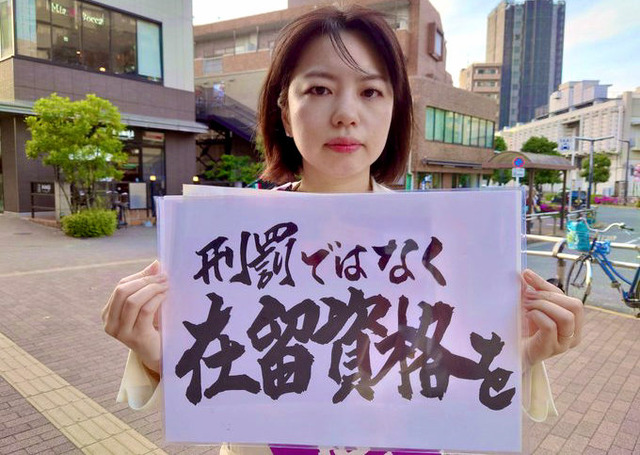 刑罰ではなく
在留資格を